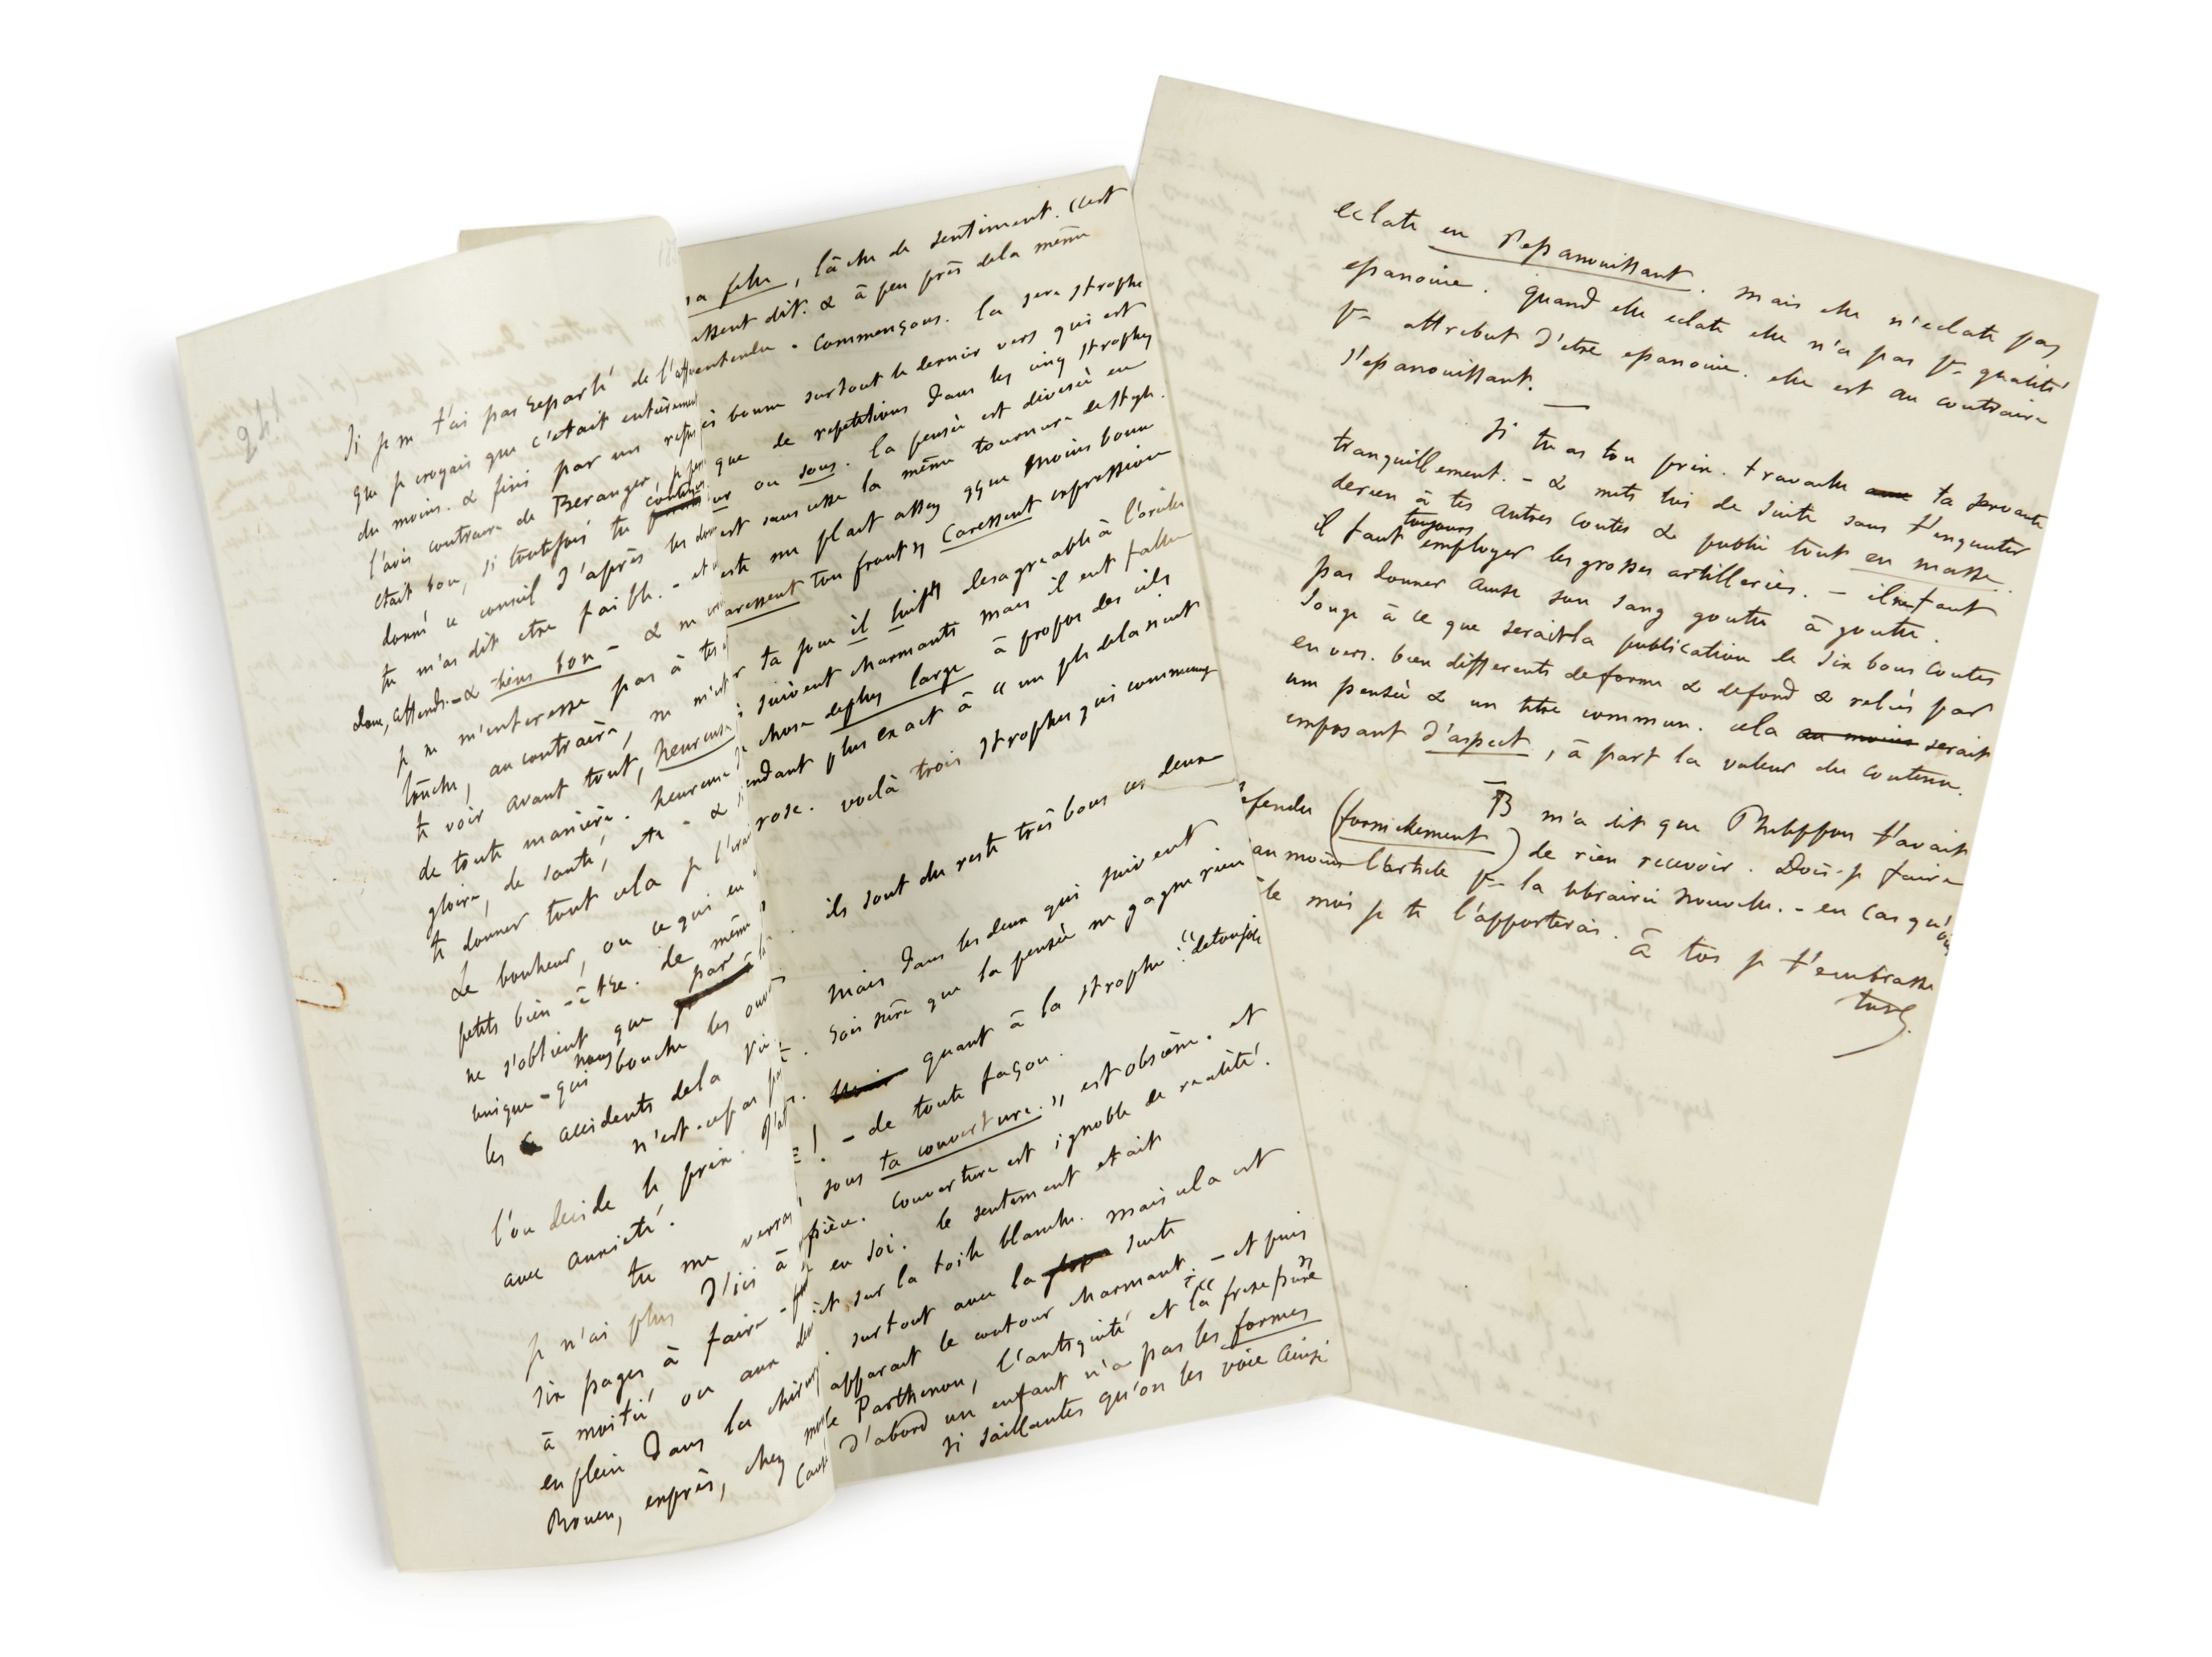 Si je ne t'ai pas reparlé de l'
que je croyais que c'etait entièrement
du moins. & finis par un refus
l'avis contraire de Béranger, je
etait bon, si toutefois tu continues
donné ce conseil d'après les
tu m'as dit etre faible. - et
donc, attends. - & tiens bon - & ne
je ne m'interesse pas à tes
touche, au contraire, ne m'est
te voir avant tout, heureuse
de toute manière. heureuse
gloire, de santé, etc - &
te donner tout cela je l'irai
Le bonheur, ou ce qui en
petits bien-être. de même
ne s'obtient que par
unique - qui nous bouche les
les accidents de la vie
n'est-ce pas
l'on decide le prix.
avec anxieté.
tu me verras
je n'ai plus d'ici à
six pages à faire -
à moitié, ou aux
en plein dans la
Rouen, exprès, chez
sa fille, lâche de sentiment. C'est
dit. & à peu près de la même
entendu. Commençons. la 1ere strophe
bonne surtout le dernier vers qui est
que de repetitions dans les cinq strophes
ou sous. la pensée est divisée en
est sans cesse la même tournure de style.
me plait assez qque moins bonne
caressent ton front" caressent expression
ta joue il luit" desagreable à l'oreille
suivent charmants mais il eut fallu
chose de plus large à propos des cils
plus exact à "un pli de la nuit
rose. voilà trois strophes qui commencent
ils sont du reste très bons ces deux
mais dans les deux qui suivent
Sois sûre que la pensée ne gagne rien
quant à la strophe: "de ton joli
! - de toute façon.
sous ta couverture." est obscène. et
pièce. Couverture est ignoble de realité.
en soi. le sentiment etait
sur la toile blanche. mais cela est
surtout avec la suite
apparait le contour charmant. - et puis
le Parthenon, l'antiquité et la "frise pure"
D'abord un enfant n'a pas les formes
si saillantes qu'on les voie ainsi
eclate en s'epanouissant. mais elle n'eclate pas
epanouie. quand elle eclate elle n'a pas pr qualité
pr attribut d'etre epanouie. elle est au contraire
s'epanouissant.
Si tu as ton prix. travaille ta servante
tranquillement. - & mets toi de suite sans t'inquieter
de rien à tes autres contes & publie tout en masse.
il faut toujours employer les grosses artilleries. - il ne faut
pas donner ainsi son sang goutte à goutte.
Songe à ce que serait la publication de six bons contes
en vers. bien differents de forme & de fond & reliés par
une pensée & un titre commun. cela au moins serait
imposant d'aspect, à part la valeur du contenu.
B m'a dit que Philippon t'avait
defendu (formellement) de rien recevoir. Dois-je faire
au moins l'article pr la librairie nouvelle. - en cas qu'oui
le mois je te l'apporterais.
à toi je t'embrasse